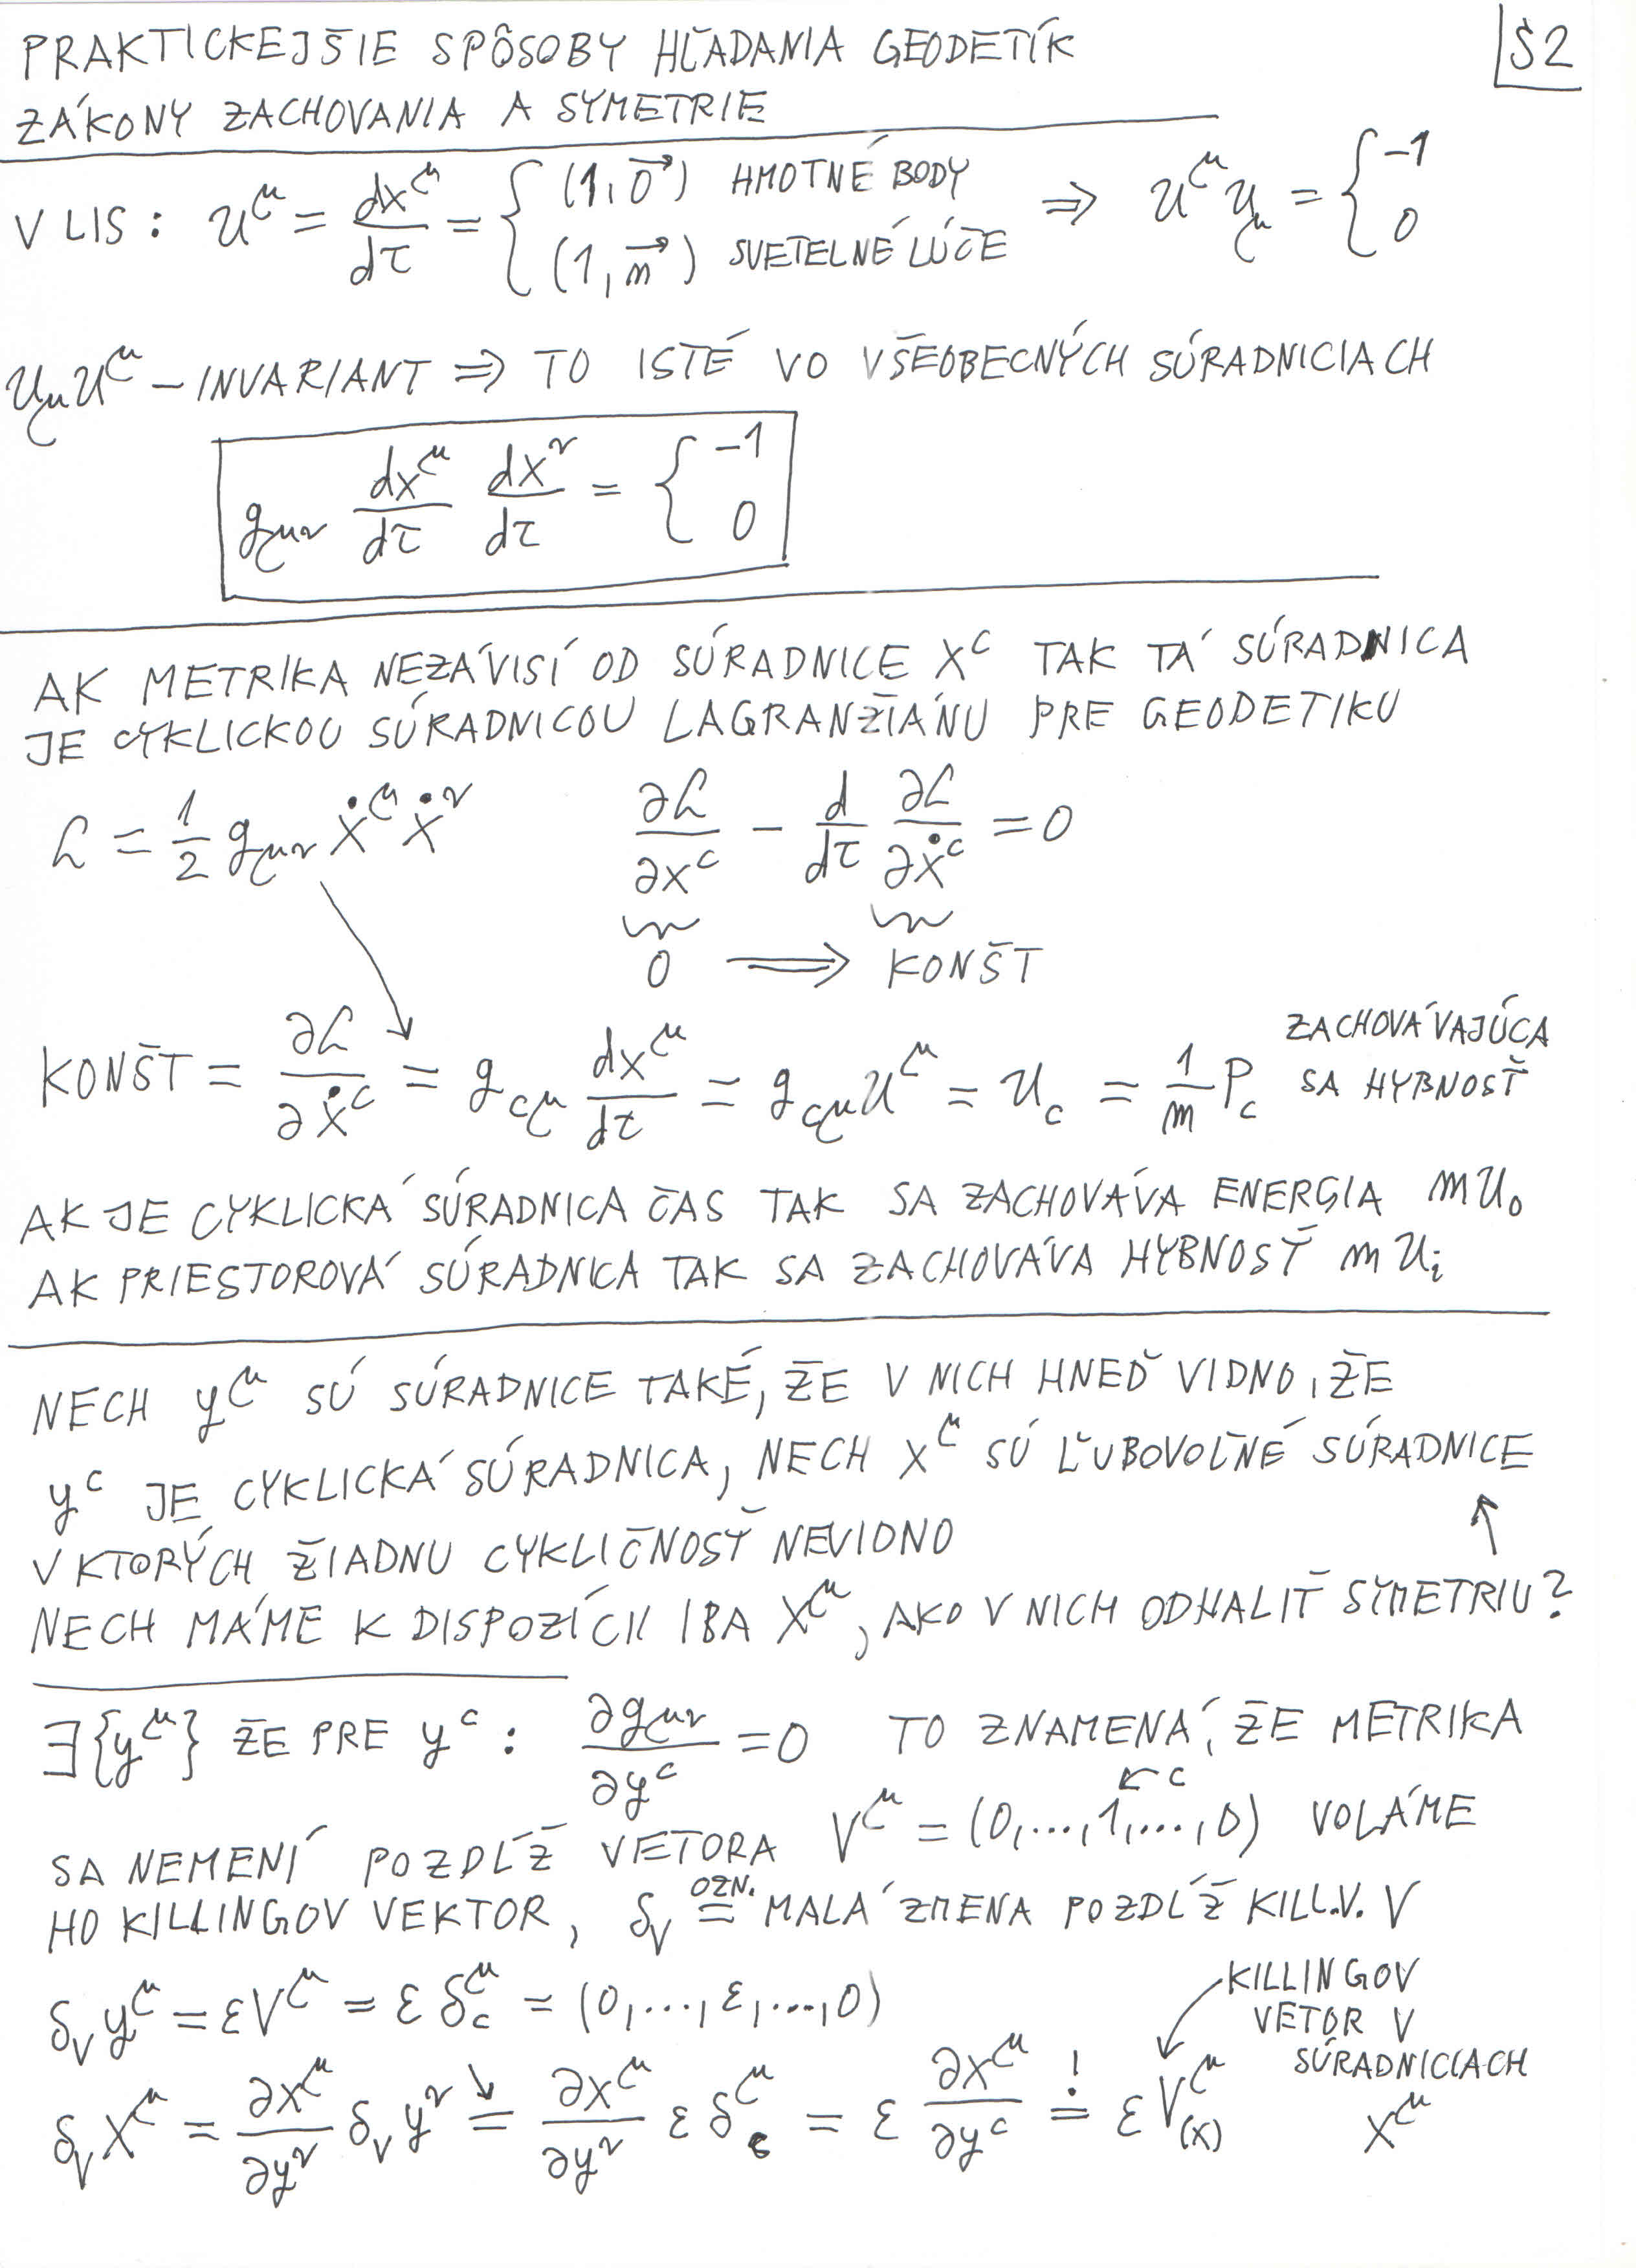 PRAKTICKEJŠIE SPÔSOBY HĽADANIA GEODETÍK
Š2
ZÁKONY ZACHOVANIA A SYMETRIE
V LIS : u^μ = dx^μ/dτ = { (1, 0⃗) HMOTNÉ BODY ; (1, n⃗) SVETELNÉ LÚČE ⇒ u^μ u_μ = { -1 ; 0
u_μ u^μ – INVARIANT ⇒ TO ISTÉ VO VŠEOBECNÝCH SÚRADNICIACH
g_μν dx^μ/dτ dx^ν/dτ = { -1 ; 0
AK METRIKA NEZÁVISÍ OD SÚRADNICE x^c TAK TÁ SÚRADNICA
JE CYKLICKOU SÚRADNICOU LAGRANŽIÁNU PRE GEODETIKU
L = 1/2 g_μν ẋ^μ ẋ^ν   ∂L/∂x^c − d/dτ ∂L/∂ẋ^c = 0
0 ⟹ KONŠT
KONŠT = ∂L/∂ẋ^c = g_cμ dx^μ/dτ = g_cμ u^μ = u_c = 1/m P_c ZACHOVÁVAJÚCA
SA HYBNOSŤ
AK JE CYKLICKÁ SÚRADNICA ČAS TAK SA ZACHOVÁVA ENERGIA m u_0
AK PRIESTOROVÁ SÚRADNICA TAK SA ZACHOVÁVA HYBNOSŤ m u_i
NECH y^μ SÚ SÚRADNICE TAKÉ, ŽE V NICH HNEĎ VIDNO, ŽE
y^c JE CYKLICKÁ SÚRADNICA, NECH x^μ SÚ ĽUBOVOĽNÉ SÚRADNICE
↑
V KTORÝCH ŽIADNU CYKLIČNOSŤ NEVIDNO
NECH MÁME K DISPOZÍCII IBA x^μ, AKO V NICH ODHALIŤ SYMETRIU?
∃{y^μ} ŽE PRE y^c : ∂g_μν/∂y^c = 0 TO ZNAMENÁ, ŽE METRIKA
↙ c
SA NEMENÍ POZDĹŽ VETORA V^μ = (0,...,1,...,0) VOLÁME
HO KILLINGOV VEKTOR, δ_V OZN. = MALÁ ZMENA POZDĹŽ KILL.V. V
δ_V y^μ = εV^μ = ε δ^μ_c = (0,...,ε,...,0)
KILLINGOV
VETOR V
SÚRADNICIACH
x^μ
δ_V x^μ = ∂x^μ/∂y^ν δ_V y^ν = ∂x^μ/∂y^ν ε δ^μ_c = ε ∂x^μ/∂y^c =! ε V^μ_(x)